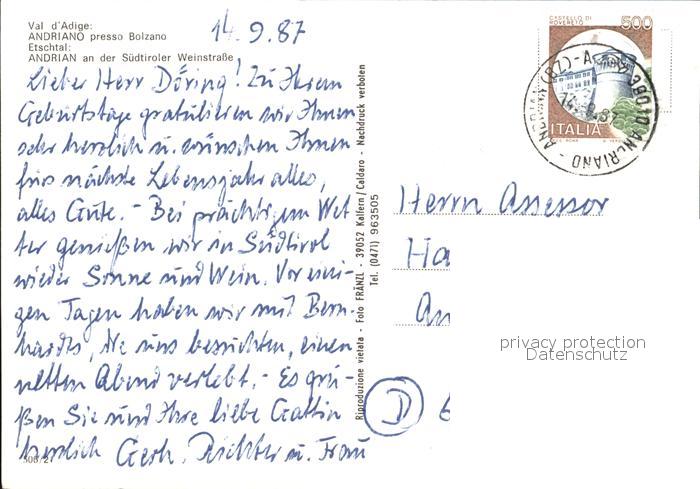 Val d'Adige:
ANDRIANO presso Bolzano
Etschtal:
ANDRIAN an der Südtiroler Weinstraße
14.9.87
Lieber Herr Döring! Zu Ihrem
Geburtstage gratulieren wir Ihnen
sehr herzlich u. wünschen Ihnen
fürs nächste Lebensjahr alles,
alles Gute. - Bei prächtigem Wet-
ter genießen wir in Südtirol
wieder Sonne und Wein. Vor eini-
gen Tagen haben wir mit Bern-
hardts, die uns besuchten, einen
netten Abend verlebt. - Es grü-
ßen Sie und Ihre liebe Gattin
herzlich Gerh. u. Frau
Riproduzione vietata - Foto FRÄNZL - 39052 Kaltern / Caldaro - Nachdruck verboten
Tel. (0471) 963505
CASTELLO DI
ROVERETO
500
ITALIA
39010 ANDRIANO - ANDRIAN (BZ) - A
Herrn Assessor
Ha
An
D 6
privacy protection
Datenschutz